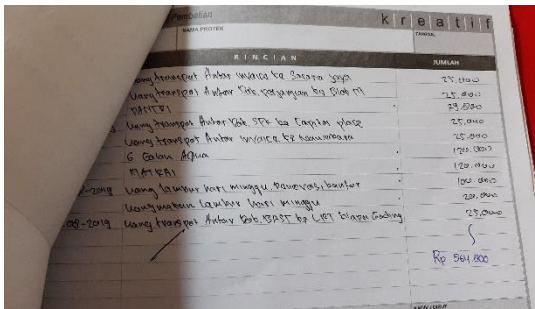 Pembelian
kreatif
NAMA PROYEK
TANGGAL
RINCIAN
JUMLAH
uang transport Antar invoice ke Jaya 25.000
uang transpot Antar Dok. perjanjian ke Blok M 25.000
79.000
uang transpot Antar Dok. SPK ke Capital place 25.000
uang transpot Antar invoice ke 25.000
6 Galon Aqua 120.000
MATRAI 120.000
-2019 uang lembur hari minggu 100.000
uang makan lembur hari minggu 20.000
-08-2019 uang transpot Antar Dok. BAST ke LRT Gading 25.000
Rp 564.000